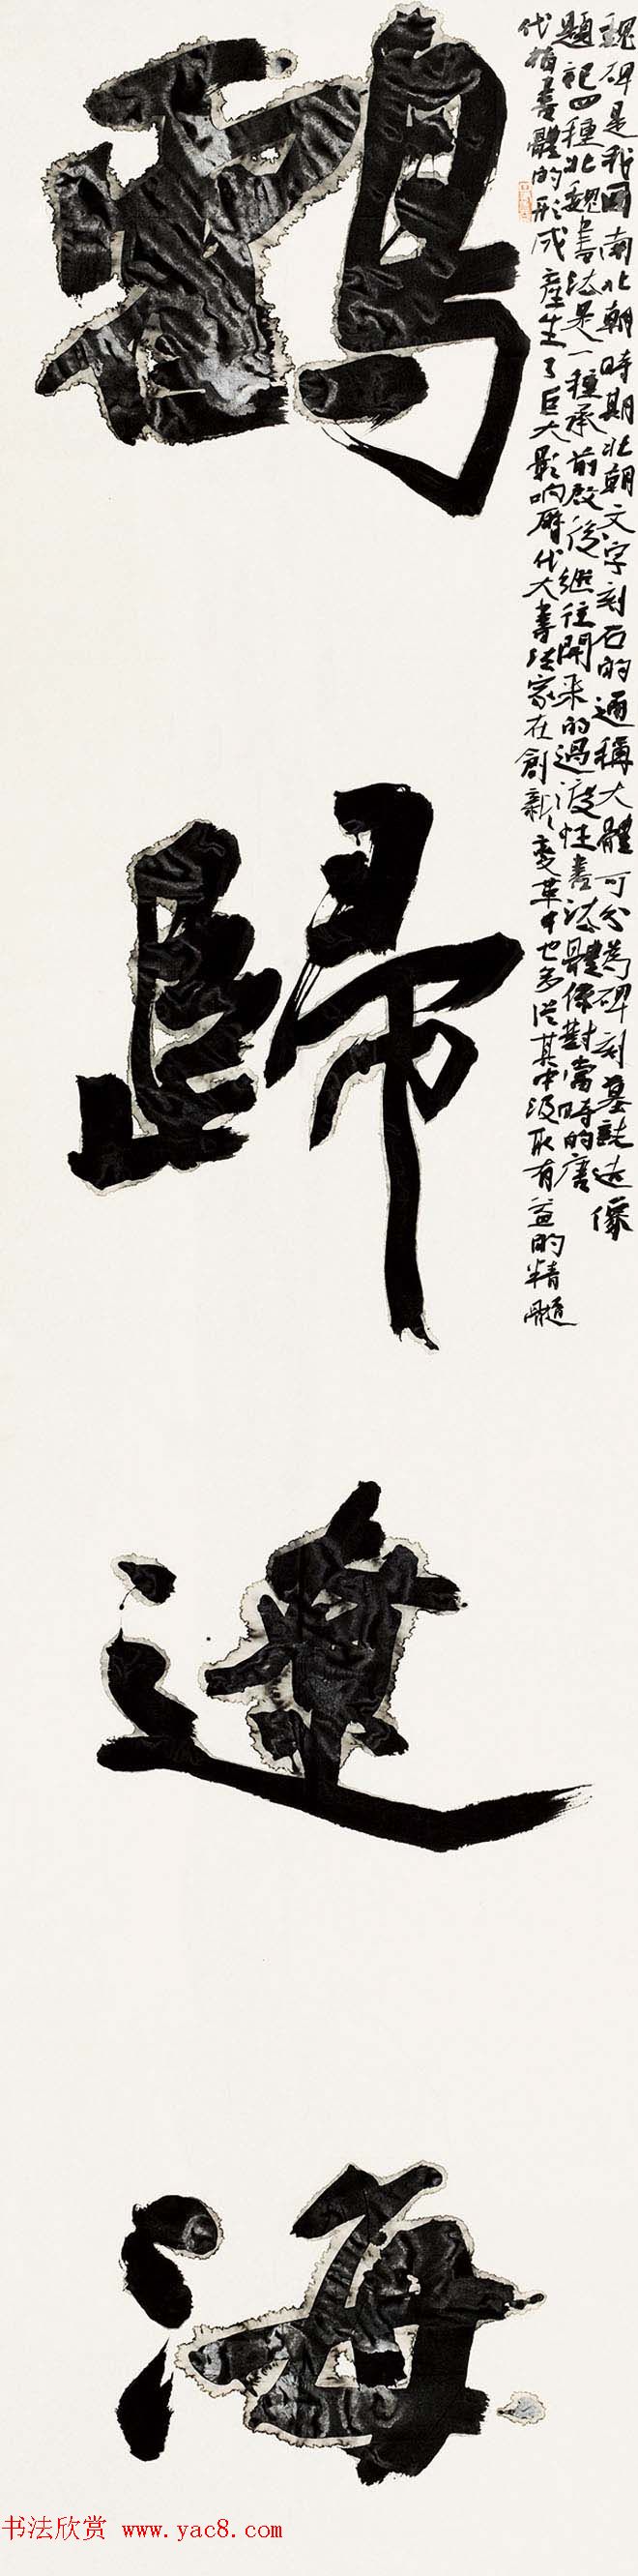 魏碑是我國南北朝時期北朝文字刻石的通稱大體可分為碑刻墓誌造像
題記四種北魏書法是一種承前啟後繼往開來的過渡性書法體係對當時的唐
代楷書體的形成產生了巨大影响歷代大書法家在創新變革中也多從其中汲取有益的精髓
鶴歸遼海
书法欣赏 www.yac8.com